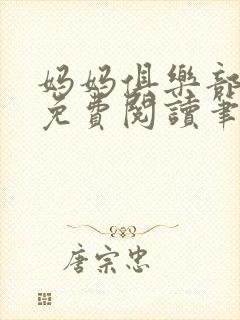 妈妈俱樂部
免費閱讀筆
唐宗忠